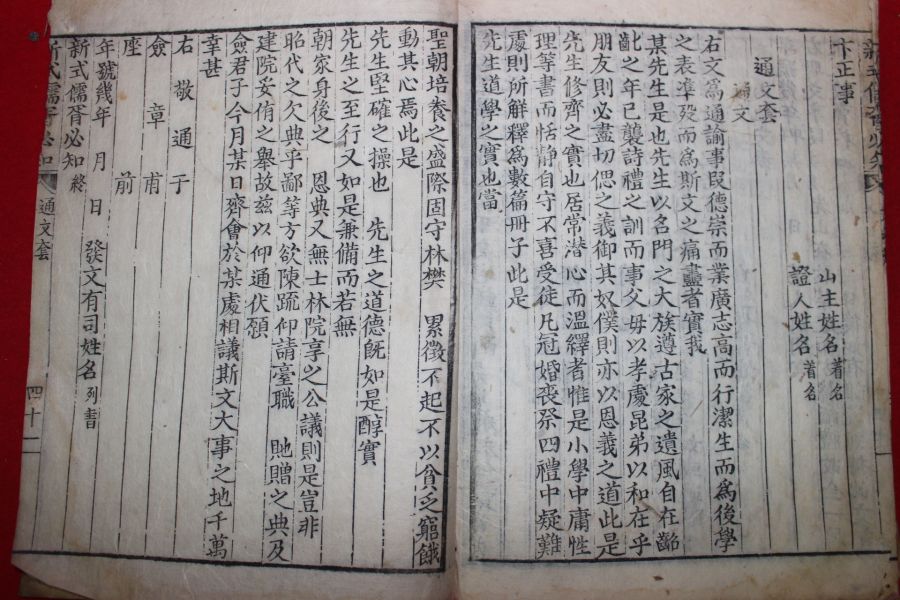 卞正事
山主姓名 著名
證人姓名 著名
通文套
通文
右文爲通諭事叚德崇而業廣志高而行潔生而爲後學
之表準歿而爲斯文之痛盡者實我
某先生是也先生以名門之大族遵古家之遺風自在齠
齔之年已襲詩禮之訓而事父母以孝處昆弟以和在乎
朋友則必盡切偲之義御其奴僕則亦以恩義之道此是
先生修齊之實也居常潜心而溫繹者惟是小學中庸性
理等書而恬靜自守不喜受徒凡冠婚喪祭四禮中疑難
處則所解釋爲數篇冊子此是
先生道學之實也當
聖朝培養之盛際固守林樊 累徵不起不以貧乏窮餓
動其心焉此是
先生堅確之操也 先生之道德旣如是醇實
先生之至行又如是兼備而若無
朝家身後之 恩典又無士林院享之公議則是豈非
昭代之欠典乎鄙等方欲陳䟽仰請臺職 貤贈之典及
建院妥侑之擧故玆以仰通伏願
僉君子今月某日齊會於某處相議斯文大事之地千萬
幸甚
右敬通于
僉章甫
座前
年號幾年 月 日 發文有司姓名 列書
新式儒胥必知 終
新式儒胥必知 通文套 四十一